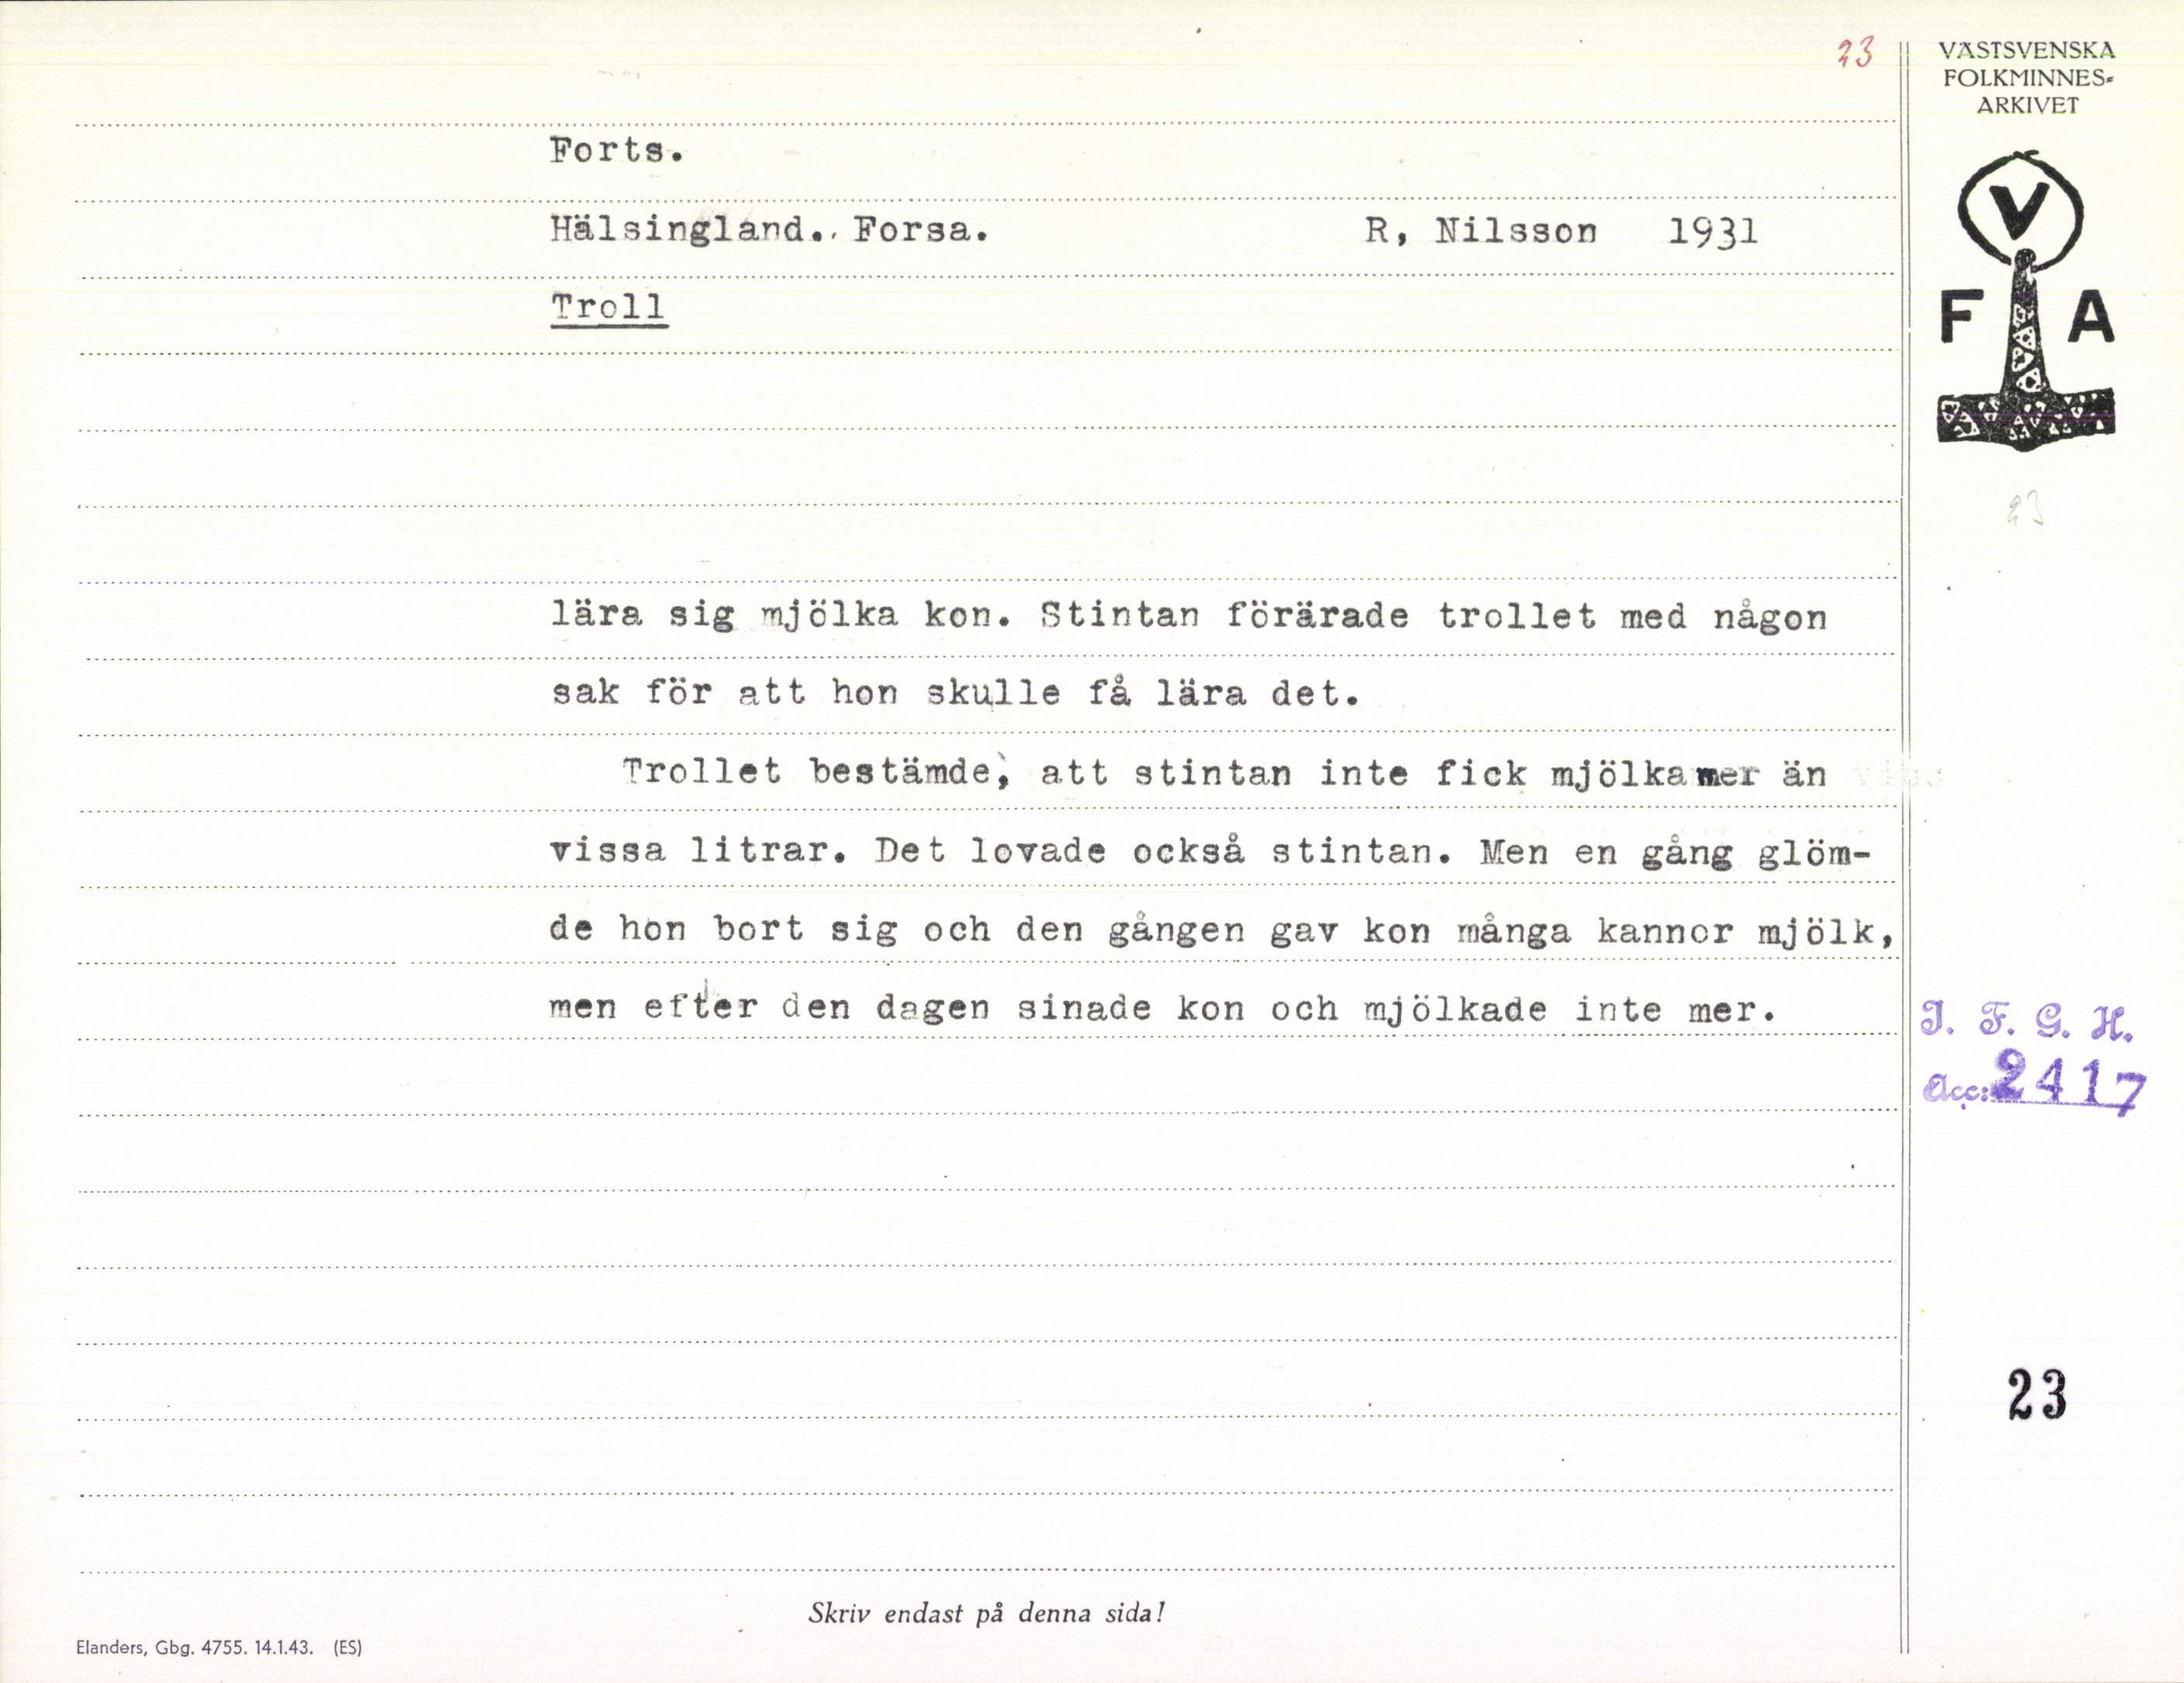 23
VÄSTSVENSKA
FOLKMINNES-
ARKIVET
Forts.
Hälsingland.. Forsa. R, Nilsson 1931
Troll
V
F A
23
lära sig mjölka kon. Stintan förärade trollet med någon
sak för att hon skulle få lära det.
Trollet bestämde, att stintan inte fick mjölka mer än
vissa litrar. Det lovade också stintan. Men en gång glöm-
de hon bort sig och den gången gav kon många kannor mjölk,
men efter den dagen sinade kon och mjölkade inte mer.
I. F. G. H.
Acc: 2417
23
Skriv endast på denna sida!
Elanders, Gbg. 4755. 14.1.43. (ES)